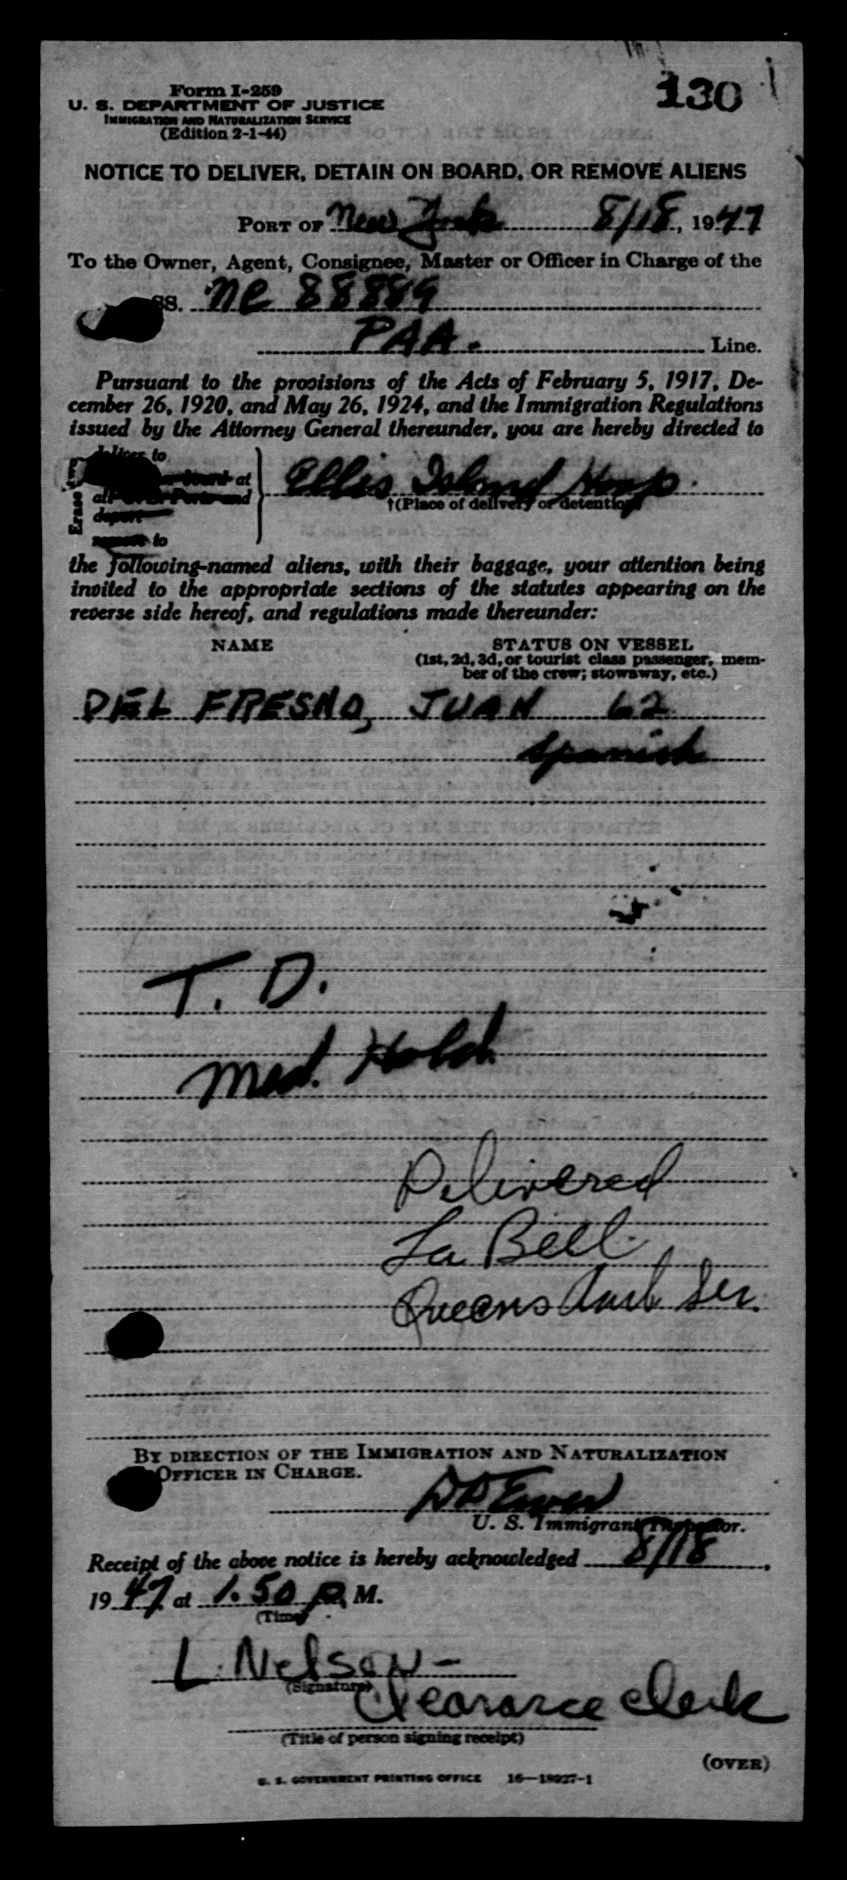 130
Form I-259
U. S. DEPARTMENT OF JUSTICE
IMMIGRATION AND NATURALIZATION SERVICE
(Edition 2-1-44)
NOTICE TO DELIVER, DETAIN ON BOARD, OR REMOVE ALIENS
PORT OF New York 8/18, 1947
To the Owner, Agent, Consignee, Master or Officer in Charge of the
SS. NC 88889
PAA. Line.
Pursuant to the provisions of the Acts of February 5, 1917, De-
cember 26, 1920, and May 26, 1924, and the Immigration Regulations
issued by the Attorney General thereunder, you are hereby directed to
Erase two
deliver to
on board at
all and
deport
remove to
Ellis Island Hosp.
†(Place of delivery or detention)
the following-named aliens, with their baggage, your attention being
invited to the appropriate sections of the statutes appearing on the
reverse side hereof, and regulations made thereunder:
NAME STATUS ON VESSEL
(1st, 2d, 3d, or tourist class passenger, mem-
ber of the crew; stowaway, etc.)
DEL FRESNO, JUAN 62
Spanish
T. D.
Med. Hold
Delivered
La Bell
Queens Amb Ser.
BY DIRECTION OF THE IMMIGRATION AND NATURALIZATION
OFFICER IN CHARGE.
U. S. Immigrant Inspector.
Receipt of the above notice is hereby acknowledged 8/18,
1947 at 1.50 P. M.
(Time)
L. Nelson -
(Signature)
Clearance Clerk
(Title of person signing receipt)
(OVER)
U. S. GOVERNMENT PRINTING OFFICE 16—18927-1